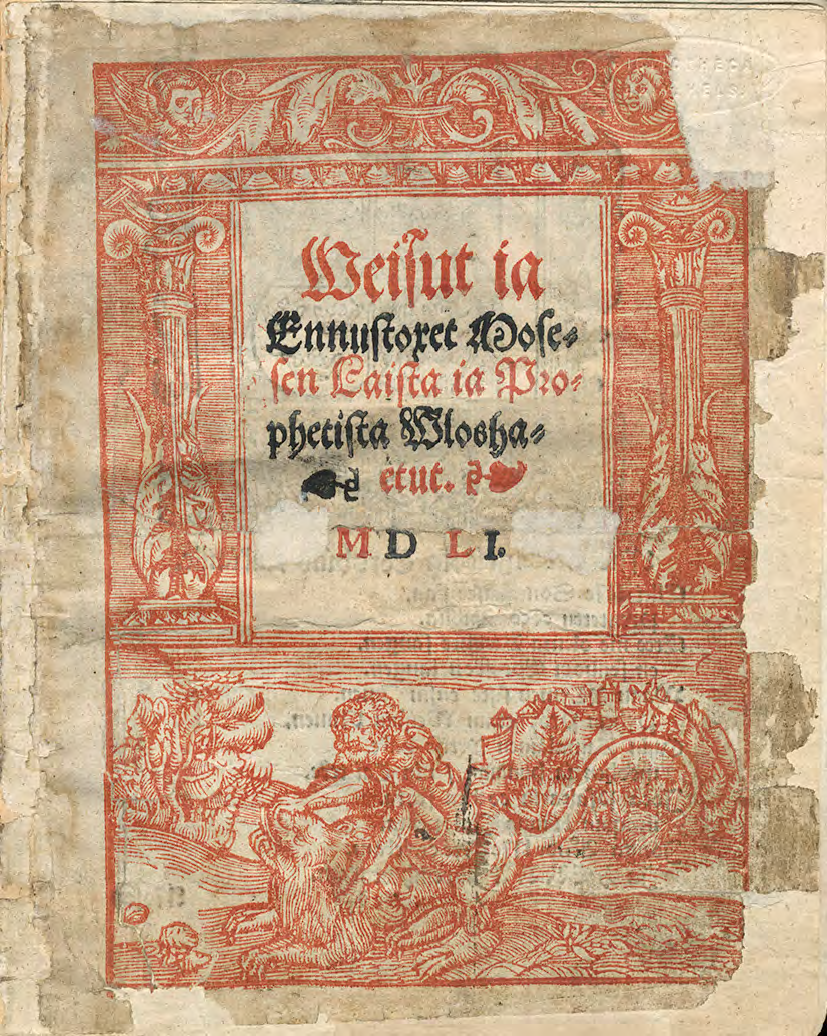 Weisut ia
Ennustoxet Mose-
sen Laista ia Pro-
phetista Wlosha-
etut.
MDLI.